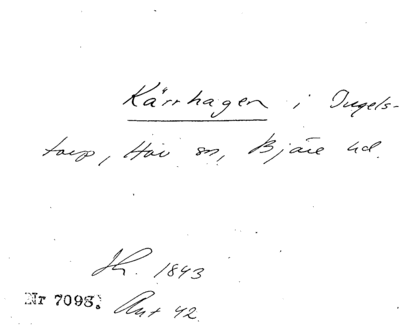 Kärrhagen i Ingels-
torp, Hov sn, Bjäre hd.
Sk. 1843
Nr 7098. Ant 42